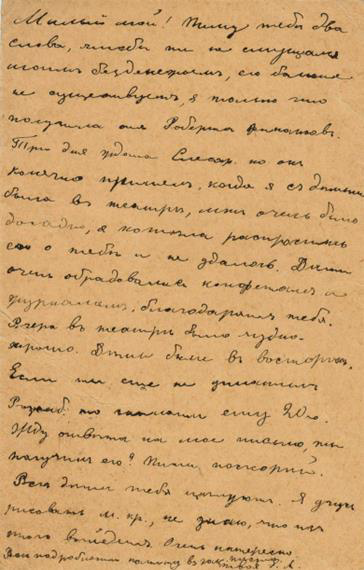 Милый мой! Пишу тебе два
слова, чтобы ты не смущался
моим безденежьем, его больше
не существует, я только что
получила от Роберта финансов.
Три дня ждала Слесар. но он
конечно пришел, когда я с детьми
была в театре, мне очень было
досадно, я хотела распросить
его о тебе и не удалось. Дети
очень обрадовались конфетам и
журналам, благодарят тебя.
Вчера в театре было чудно-
хорошо. Дети были в восторге.
Если ты еще не
то напиши ему
Жду ответа на мое письмо, ты
получил его? Пиши поскорей.
Все дети тебя целуют. Я учусь
рисовать м. пр., не знаю, что из
этого выйдет. Очень интересно
Все подробности напишу в